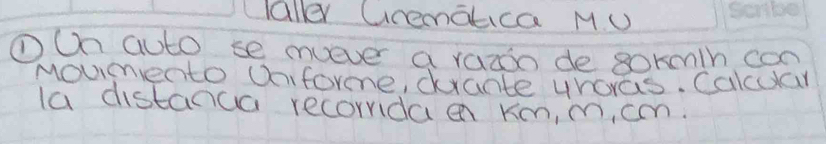 Taller Cinemática M.U
Scribe
① Un auto se muever a razón de 80km/h con
Movimiento Uniforme, durante 4horas. Calcular
la distancia recorrida en Km, m, cm.